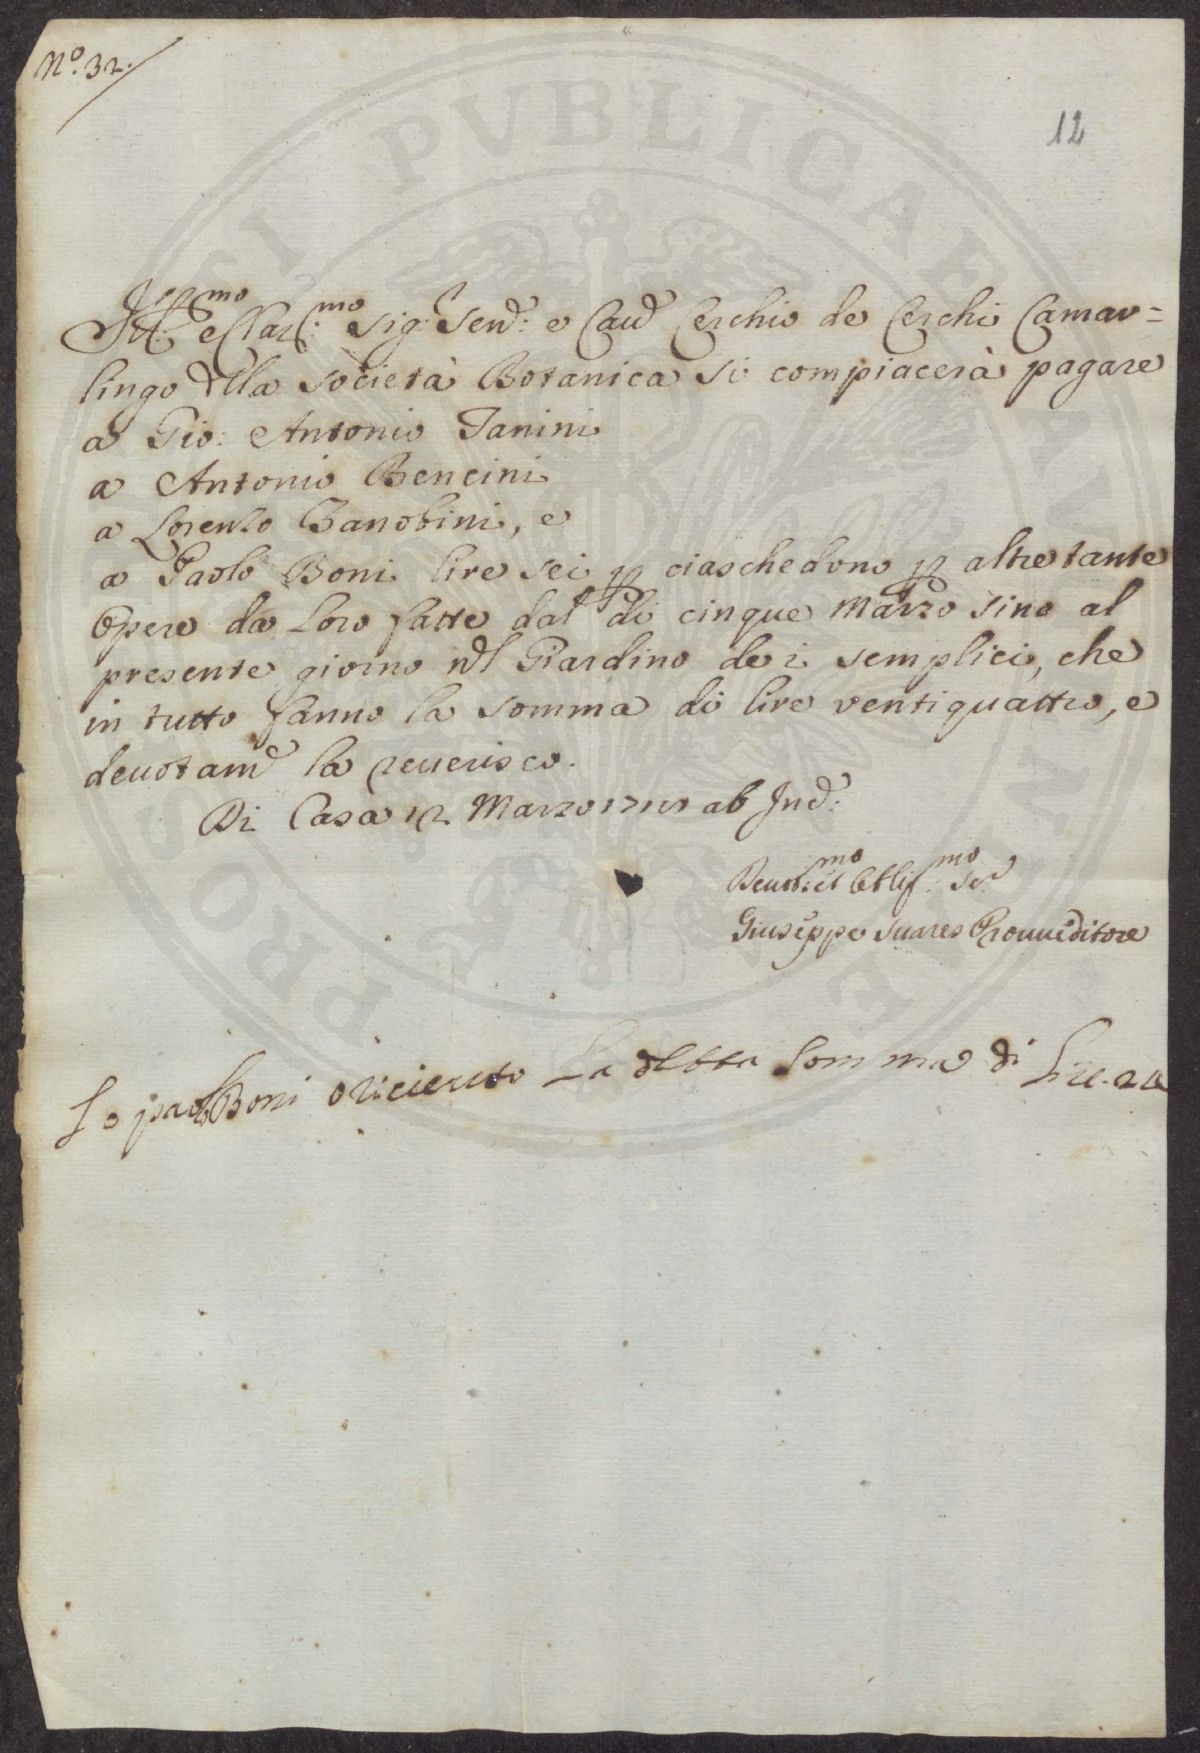 N.º 32.
12
Ill.mo e Clar.mo Sig. Sen.: e Cav. Cerchio de Cerchi Camar=
lingo della Società Botanica si compiacerà pagare
a Gio: Antonio Tanini
a Antonio Bencini
a Lorenzo Banobini, e
a Paolo Boni lire sei p ciascheduno p altretante
Opere da Loro fatte dal dì cinque Marzo sino al
presente giorno nel Giardino dei semplici, che
in tutto fanno la somma di lire ventiquattro, e
deuotam.e la reuerisco.
Di Casa 12 Marzo ab Ind:
Deuot: et Obblig.mo Se.
Giuseppe Suares Prouueditore
Io paolo Boni o riceuuto La detta somma di Lire 24
PROSPERITATI PUBLICAE